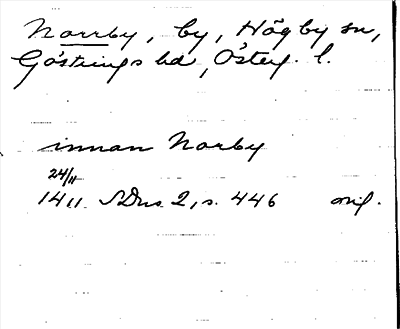 Norrby, by, Högby sn,
Göstrings hd, Österg. l.
innan Norby
24/11
1411 SDns. 2, s. 446 orig.